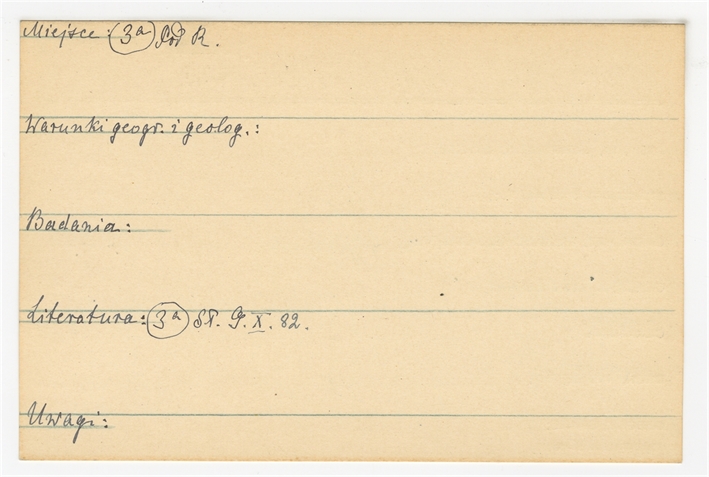 Miejsce: 3a Pod R.
Warunki geogr. i geolog.:
Badania:
Literatura: 3a St. G. X. 82.
Uwagi: